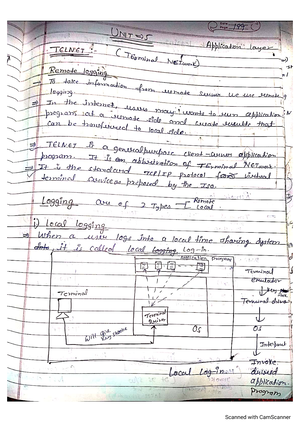 UNIT ⇒ 5
Application layer
TELNET : (Terminal NETwork)
Remote logging
⇒ To take information from remote server we use remote
logging.
⇒ In the Internet, users may wants to run application
program at a remote side and create results that
can be transferred to local side.
⇒ TELNET is a general purpose client-server application
program. It is an abbreviation of TErminaL NETwork
⇒ It is the standard TCP/IP protocol for virtual
terminal services proposed by the ISO.
Logging are of 2 types Remote
Local
i) Local logging
⇒ When a user logs into a local time sharing system
it is called local Log-In.
Application Programs
Terminal
Terminal
emulator
Terminal
Driver
Terminal driver
OS
OS
Interpret
Local Log-in
Invoke
desired
application
program
Scanned with CamScanner